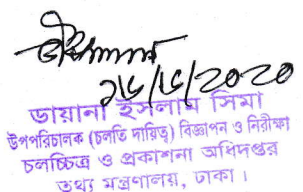 ১৬/৬/২০২০
ডায়ানা ইসলাম সিমা
উপপরিচালক (চলতি দায়িত্ব) বিজ্ঞাপন ও নিরীক্ষা
চলচ্চিত্র ও প্রকাশনা অধিদপ্তর
তথ্য মন্ত্রণালয়, ঢাকা।